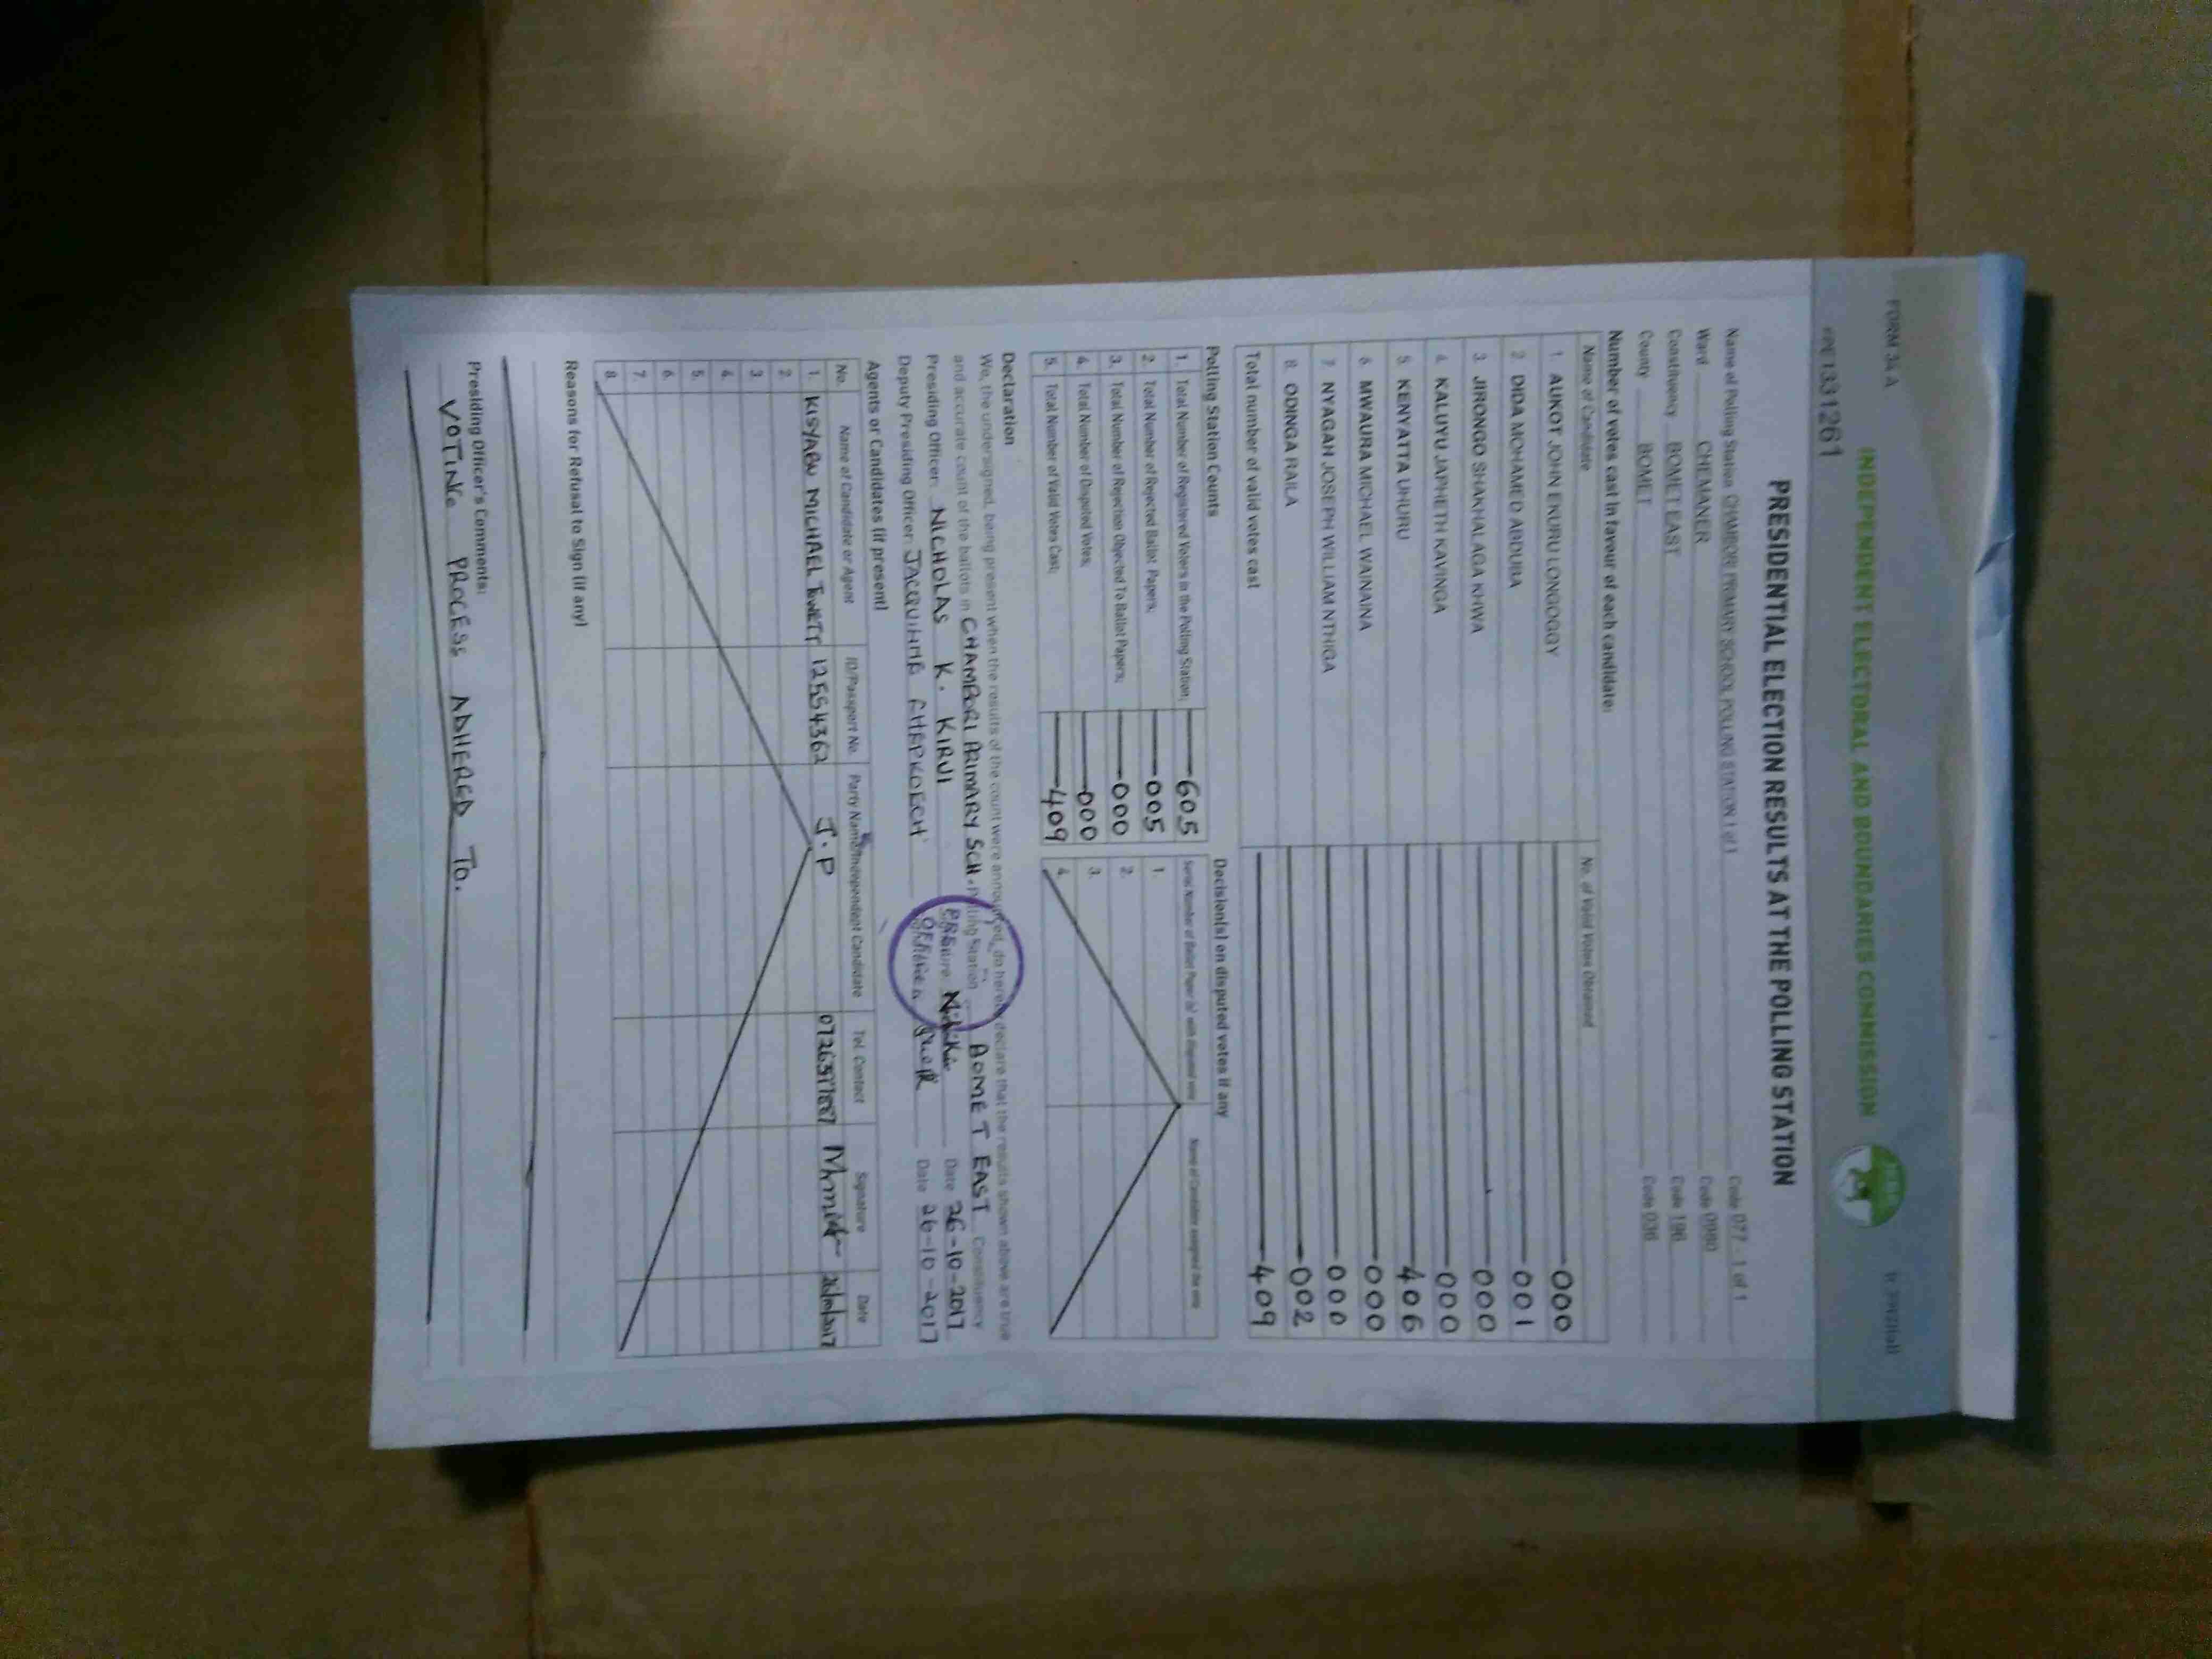 FORM 34 A
INDEPENDENT ELECTORAL AND BOUNDARIES COMMISSION
PRESIDENTIAL ELECTION RESULTS AT THE POLLING STATION
Name of Polling Station CHAMBORI PRIMARY SCHOOL POLLING STATION 1 of 1 Code 077 - 1 of 1
Ward CHEMANER Code 0980
Constituency BOMET EAST Code 196
County BOMET Code 036
Number of votes cast in favour of each candidate:
Name of Candidate No. of Valid Votes Obtained
1. AUKOT JOHN EKURU LONGOGGY 000
2. DIDA MOHAMED ABDUBA 001
3. JIRONGO SHAKHALAGA KHWA 000
4. KALUYU JAPHETH KAVINGA 000
5. KENYATTA UHURU 406
6. MWAURA MICHAEL WAINAINA 000
7. NYAGAH JOSEPH WILLIAM NTHIGA 000
8. ODINGA RAILA 002
Total number of valid votes cast 409
Polling Station Counts
1. Total Number of Registered Voters in the Polling Station; 605
2. Total Number of Rejected Ballot Papers; 005
3. Total Number of Rejection Objected To Ballot Papers; 000
4. Total Number of Disputed Votes; 000
5. Total Number of Valid Votes Cast; 409
Decision(s) on disputed votes if any
1.
2.
3.
4.
Declaration
We, the undersigned, being present when the results of the count were announced, do hereby declare that the results shown above are true
and accurate count of the ballots in CHAMBORI PRIMARY SCH. Polling Station BOMET EAST Constituency
Presiding Officer: NICHOLAS K. KIRUI Date 26-10-2017
Deputy Presiding Officer: Date 26-10-2017
Agents or Candidates (if present)
No. Name of Candidate or Agent ID/Passport No. Party Name/Independent Candidate Tel. Contact Signature Date
1. MICHAEL 12554362 J.P
2.
3.
4.
5.
6.
7.
8.
Reasons for Refusal to Sign (if any)
Presiding Officer's Comments:
VOTING PROCESS ADHERED TO.